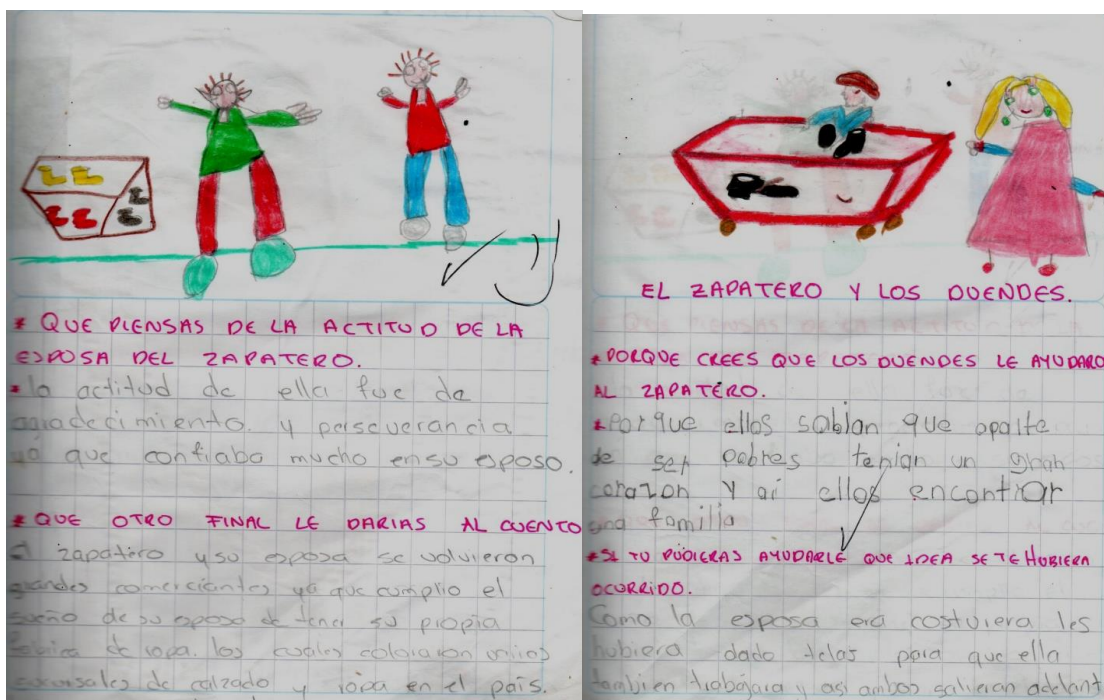 * QUE PIENSAS DE LA ACTITUD DE LA
ESPOSA DEL ZAPATERO.
* la actitud de ella fue de
agradecimiento. y perseverancia
ya que confiaba mucho en su esposo.
* QUE OTRO FINAL LE DARIAS AL CUENTO
El zapatero y su esposa se volvieron
grandes comerciantes ya que cumplio el
sueño de su esposa de tener su propia
fabrica de ropa. los cuales colocaron varios
sucursales de calzado y ropa en el país.
EL ZAPATERO Y LOS DUENDES.
* PORQUE CREES QUE LOS DUENDES LE AYUDARO
AL ZAPATERO.
* Porque ellos sabian que aparte
de ser pobres tenian un gran
corazon y ellos encontrar
una familia
* SI TU PUDIERAS AYUDARLE QUE IDEA SE TE HUBIERA
OCURRIDO.
Como la esposa era costuiera les
hubiera dado telas para que ella
tambien trabajara y asi ambos salieran adelant